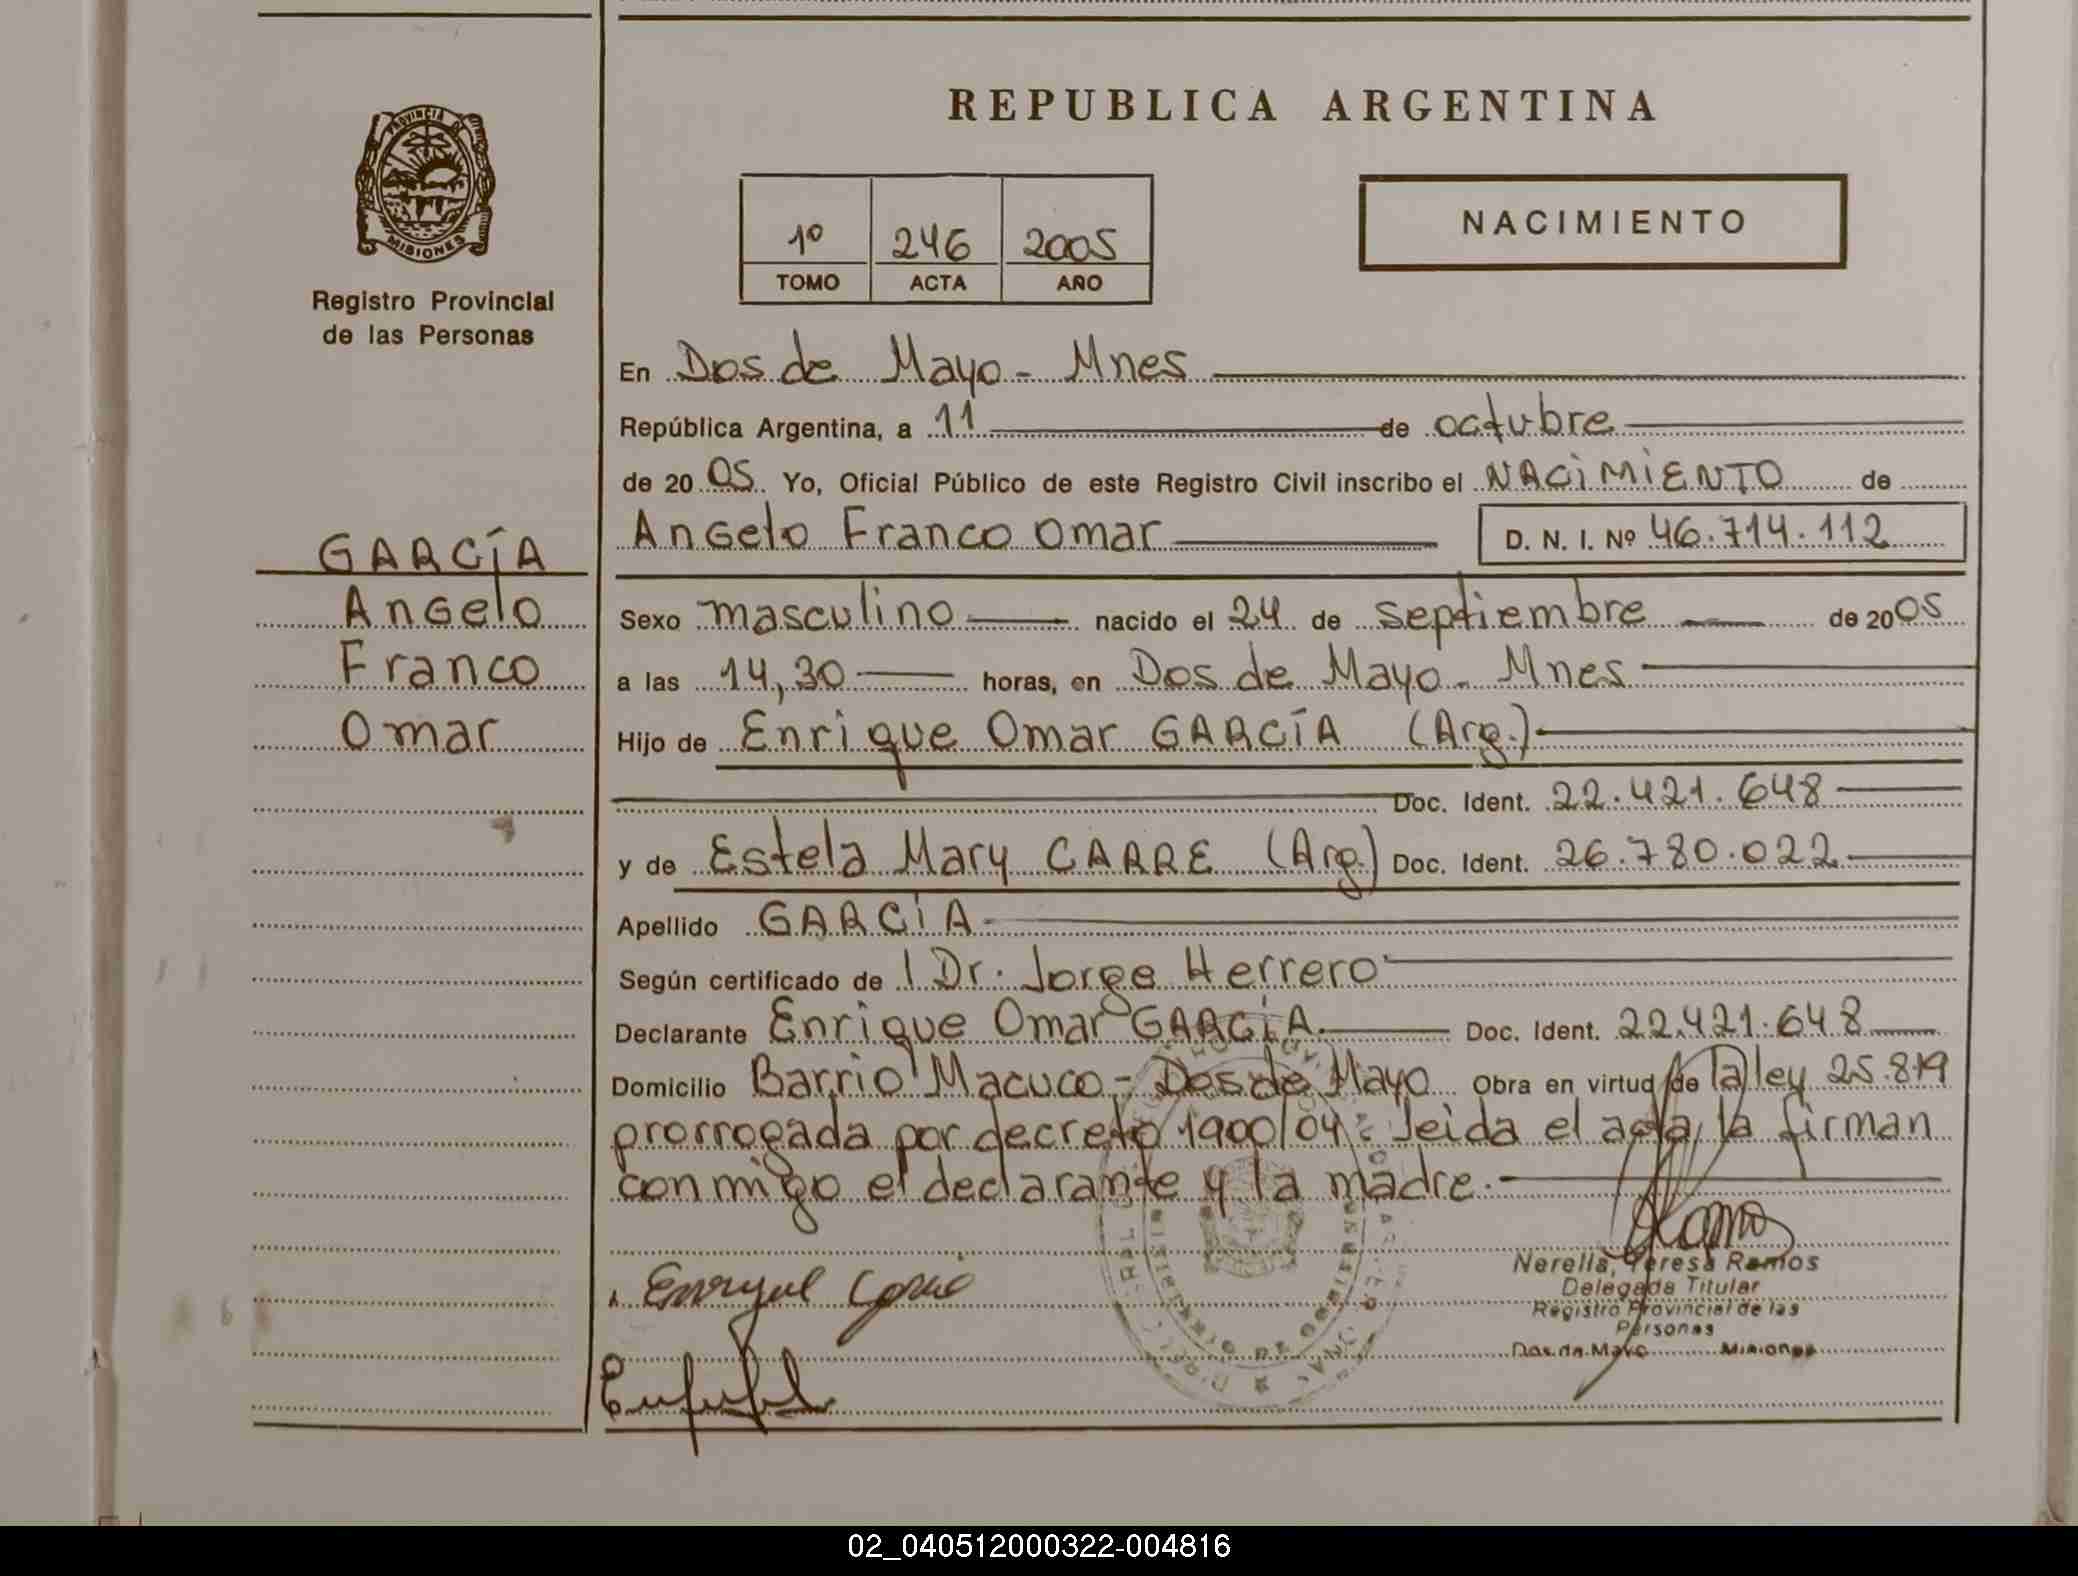 REPUBLICA ARGENTINA
PROVINCIA DE
MISIONES
Registro Provincial
de las Personas
1º 246 2005
TOMO ACTA AÑO
NACIMIENTO
En Dos de Mayo - Mnes
República Argentina, a 11 de octubre
de 20 05 Yo, Oficial Público de este Registro Civil inscribo el NACIMIENTO de
Angelo Franco Omar D. N. I. Nº 46.714.112
GARCÍA
Angelo
Franco
Omar
Sexo masculino nacido el 24 de septiembre de 20 05
a las 14,30 horas, en Dos de Mayo - Mnes
Hijo de Enrique Omar GARCÍA (Arg.)
Doc. Ident. 22.421.648
y de Estela Mary CARRE (Arg.) Doc. Ident. 26.780.022
Apellido GARCÍA
Según certificado de l Dr. Jorge Herrero
Declarante Enrique Omar GARCÍA. Doc. Ident. 22.421.648
Domicilio Barrio Macuco - Dos de Mayo Obra en virtud de la ley 25.819
prorrogada por decreto 1900/04: leida el acta, la firman
conmigo el declarante y la madre.
Nerella, Teresa Ramos
Delegada Titular
Registro Provincial de las
Personas
Dos de Mayo Misiones
02_040512000322-004816